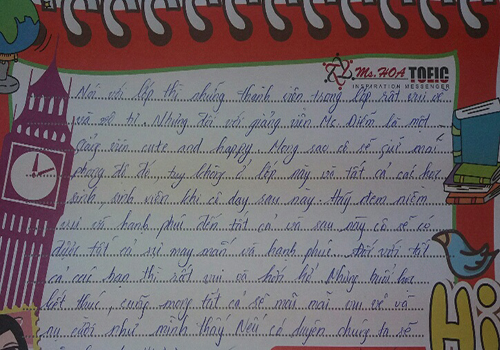 Ms. HOA TOEIC
INSPIRATION MESSENGER
Nói với lớp thì những thành viên trong lớp rất vui vẻ
và vô tư. Nhưng đối với giảng viên Ms. Diễm là một
giảng viên cute and happy. Mong sao cô sẽ giữ mãi
phong độ đó tuy không ở lớp này và tất cả các học
sinh, sinh viên khi cô dạy sau này. Hãy đem niềm
vui và hạnh phúc đến tất cả và sau này cô sẽ có
được tất cả sự may mắn và hạnh phúc. Đối với tất
cả các bạn thì rất vui và hòa Những buổi học
kết thúc, cũng mong tất cả sẽ mãi mãi vui vẻ và
nụ cười như mình thấy Nếu có duyên chúng ta sẽ
Hi